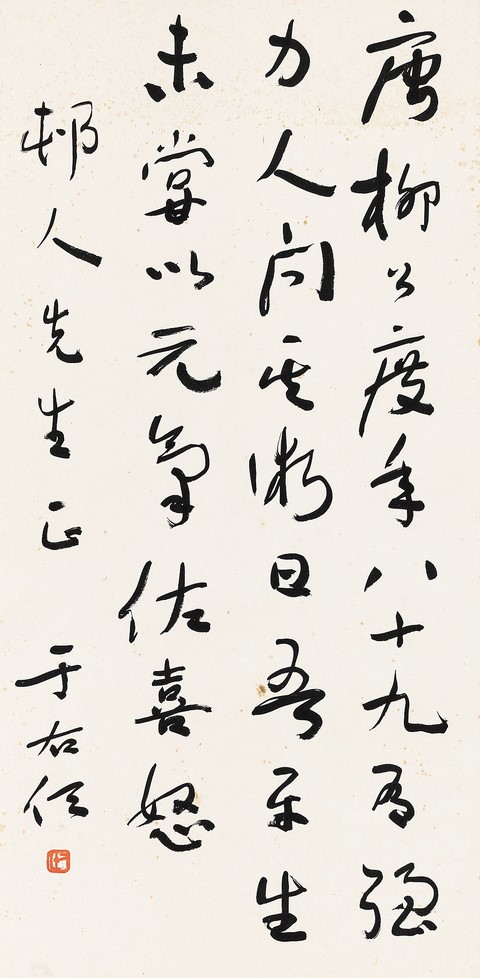 唐柳公度年八十九有强
力人问其术曰吾平生
未尝以元气佐喜怒
邨人先生正 于右任